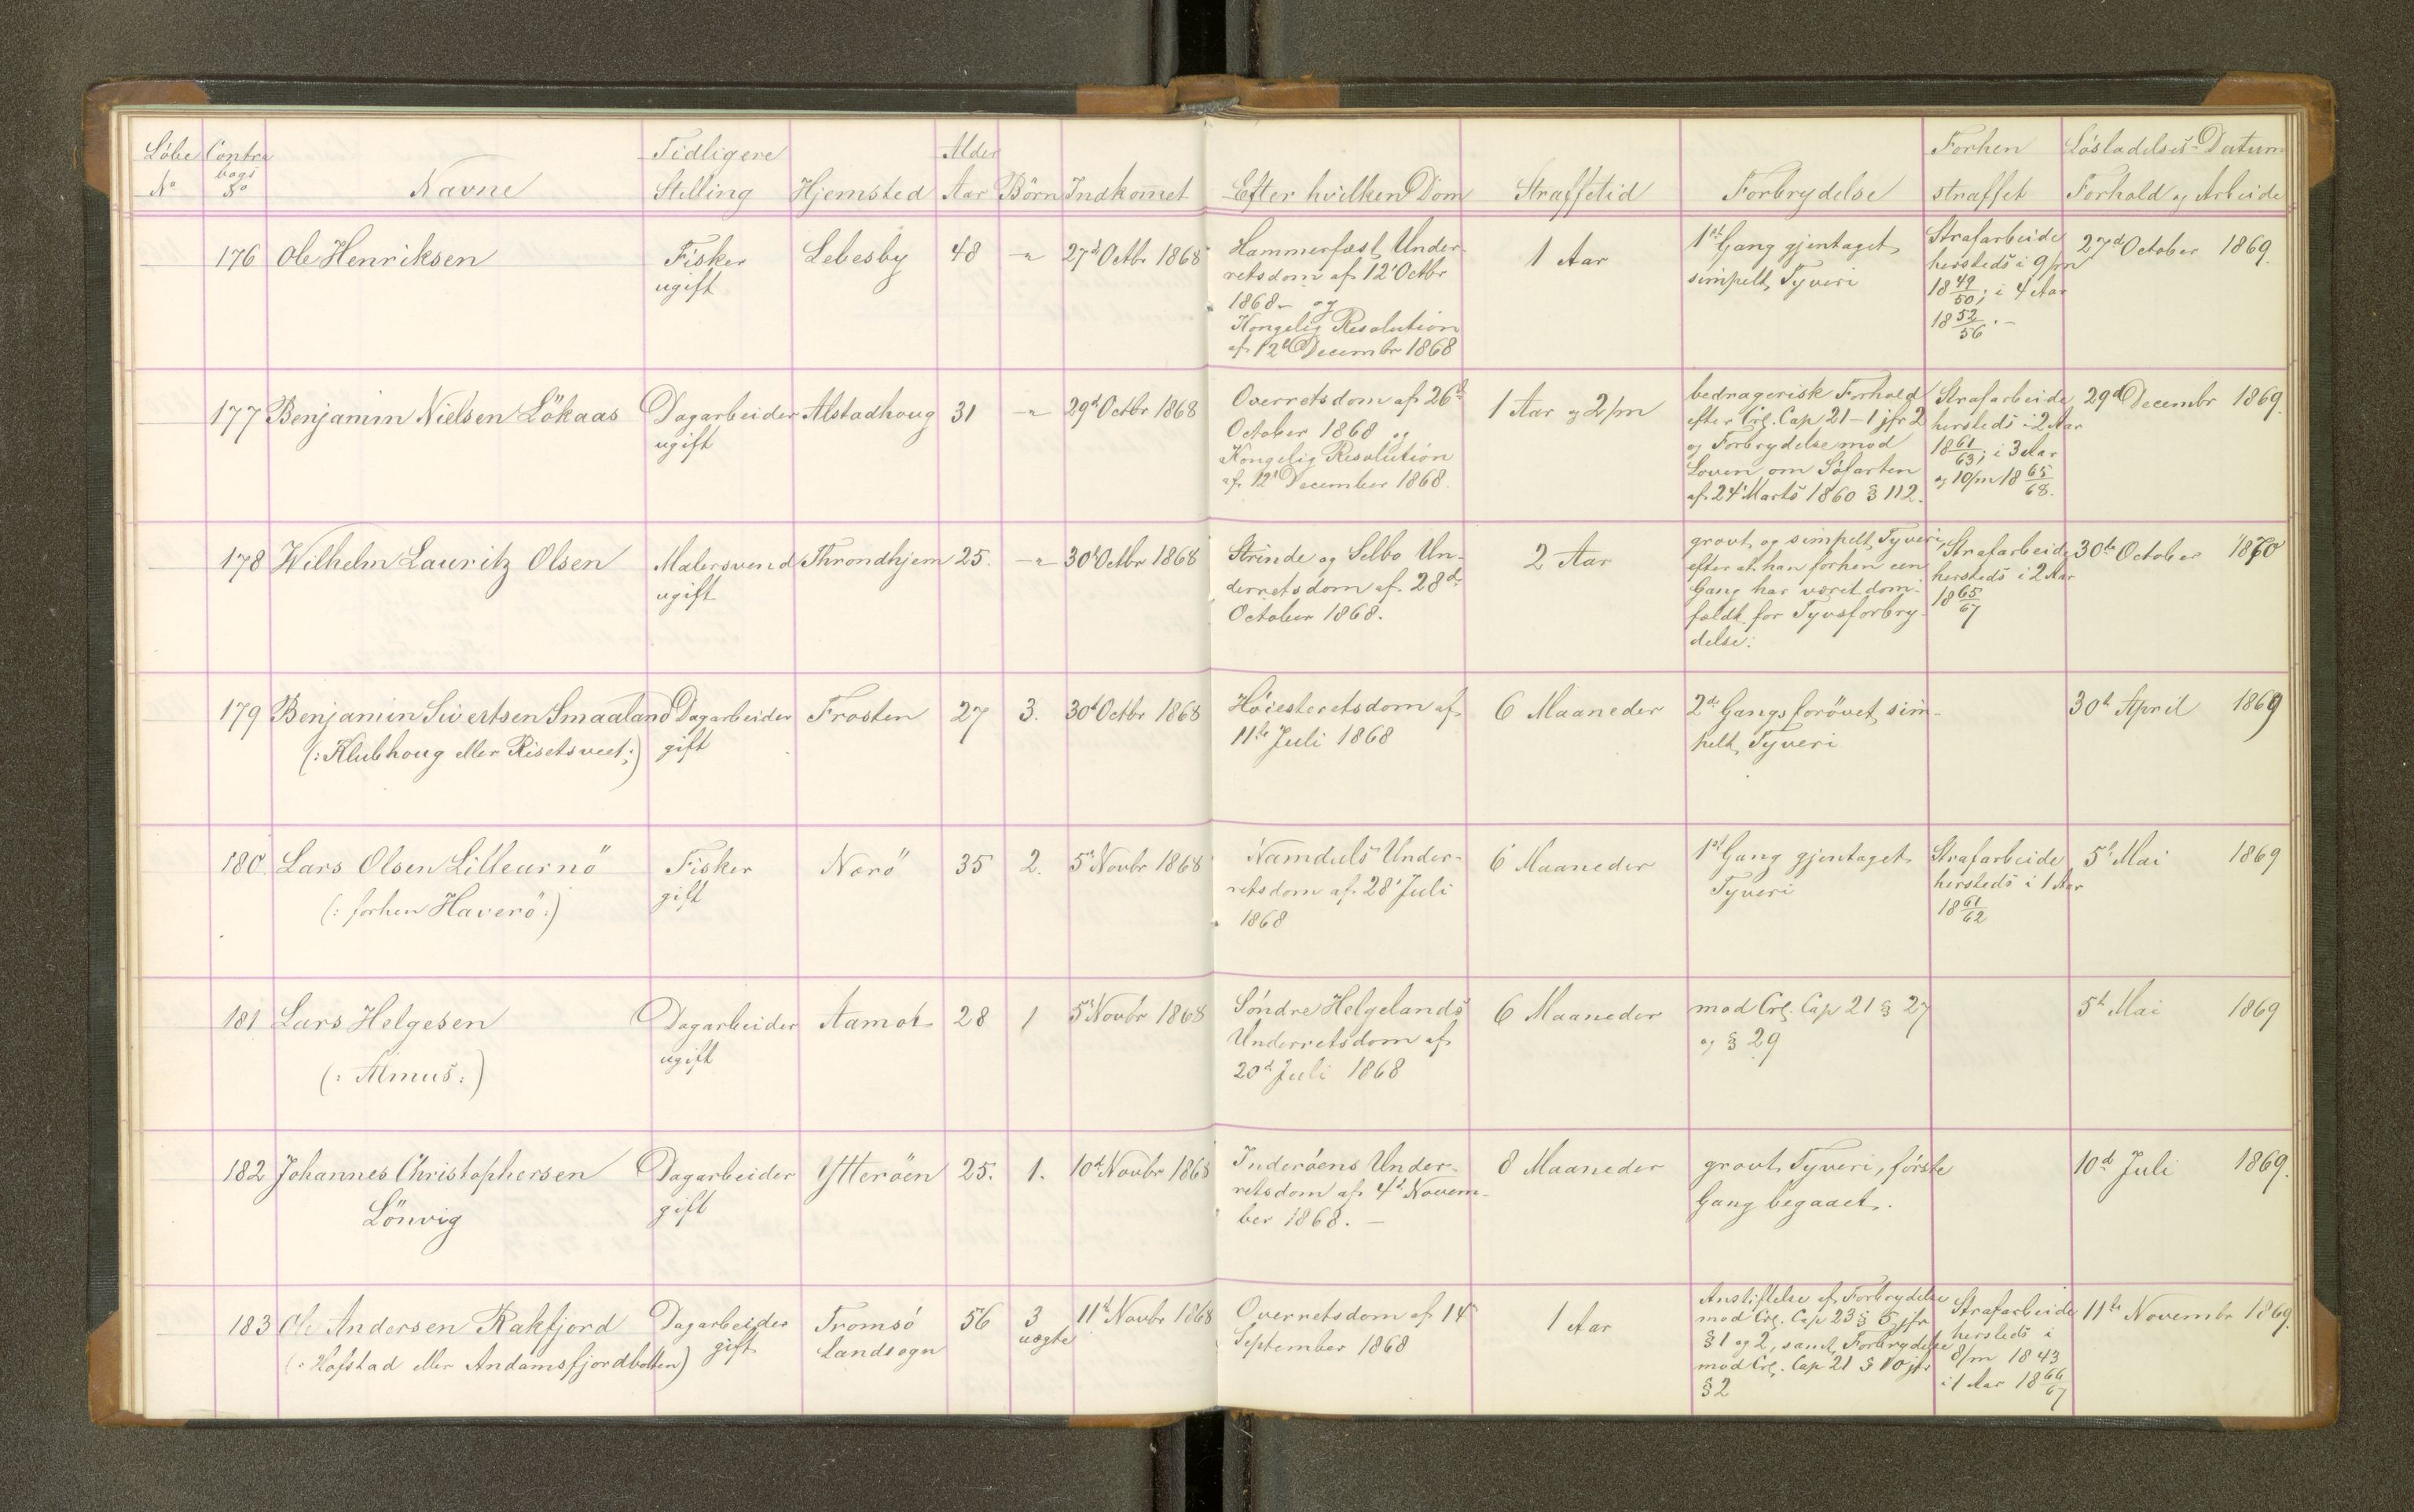 Løbe Contra Tidligere Alder Forhen Løsladelses-Datum
bogs
No No Navne Stilling Hjemsted Aar Börn Indkommet Efter hvilken Dom Straffetid Forbrydelse straffet Forhold og Arbeide
176 Ole Henriksen
Fisker
ugift
Lebesby
48
-"-
27d Octbr 1868
Hammerfæst Under-
retsdom af 12t Octbr
1868 - og
Kongelig Resolution
af 12t Decembr 1868
1 Aar
1ste Gang gjentaget
simpelt Tyveri
Strafarbeide
hersteds i 9/m
18 49/50; i 4 Aar
18 52/56.-
27d October 1869.
177 Benjamin Nielsen Lökaas
Dagarbeider
ugift
Alstadhoug
31
-"-
29d Octbr 1868
Overretsdom af 26d
October 1868 og
Kongelig Resolution
af 12t December 1868.
1 Aar og 2/m
bedragerisk Forhold
efter Crl. Cap 21-1 jfr 2
og Forbrydelse mod
Loven om Söfarten
af 24t Marts 1860 § 112.
Strafarbeide
hersteds i 2 Aar
18 61/63; i 3 Aar
og 10/m 18 65/68.
29d Decembr 1869.
178 Wilhelm Lauritz Olsen
Malersvend
ugift
Throndhjem
25.
-"-
30t Octbr 1868
Strinde og Selbo Un-
derretsdom af 28d
October 1868.
2 Aar
grovt og simpelt Tyveri,
efter at han forhen een
Gang har været dom-
fældt for Tyvsforbry-
delse.
Strafarbeide
hersteds i 2 Aar
18 65/67
30te October 1870
179 Benjamin Sivertsen Smaaland
(: Klubhoug eller Risetsveet :)
Dagarbeider
gift
Frosten
27
3.
30t Octbr 1868
Høiesteretsdom af
11te Juli 1868
6 Maaneder
2den Gangs forövet sim-
pelt Tyveri
30t April 1869
180 Lars Olsen Lillearnö
(: forhen Haverö :)
Fisker
gift
Nærö
35
2.
5t Novbr 1868
Namdals Under-
retsdom af 28t Juli
1868
6 Maaneder
1ste Gang gjentaget
Tyveri
Strafarbeide
hersteds i 1 Aar
18 61/62
5t Mai 1869
181 Lars Helgesen
(: Almus :)
Dagarbeider
ugift
Aamot
28
1
5t Novbr 1868
Söndre Helgelands
Underretsdom af
20d Juli 1868
6 Maaneder
mod Crl. Cap 21 § 27
og § 29
5t Mai 1869
182 Johannes Christophersen
Lönvig
Dagarbeider
gift
Ytteröen
25.
1.
10d Novbr 1868
Inderöens Under-
retsdom af 4t Novem-
ber 1868. -
8 Maaneder
grovt Tyveri, förste
Gang begaaet.
10d Juli 1869.
183 Ole Andersen Rakfjord
(: Hofstad eller Andamsfjordbotten)
Dagarbeider
gift
Tromsö
Landsogn
56
3
uægte
11te Novbr 1868
Overretsdom af 14t
September 1868
1 Aar
Anstiftelse af Forbrydelse
mod Crl. Cap 23 § 5 jfr
§ 1 og 2, samt Forbrydelse
mod Crl. Cap 21 § 10 jfr
§ 2
Strafarbeide
hersteds i
8/m 1843
i 1 Aar 18 66/67
11te Novembr 1869.